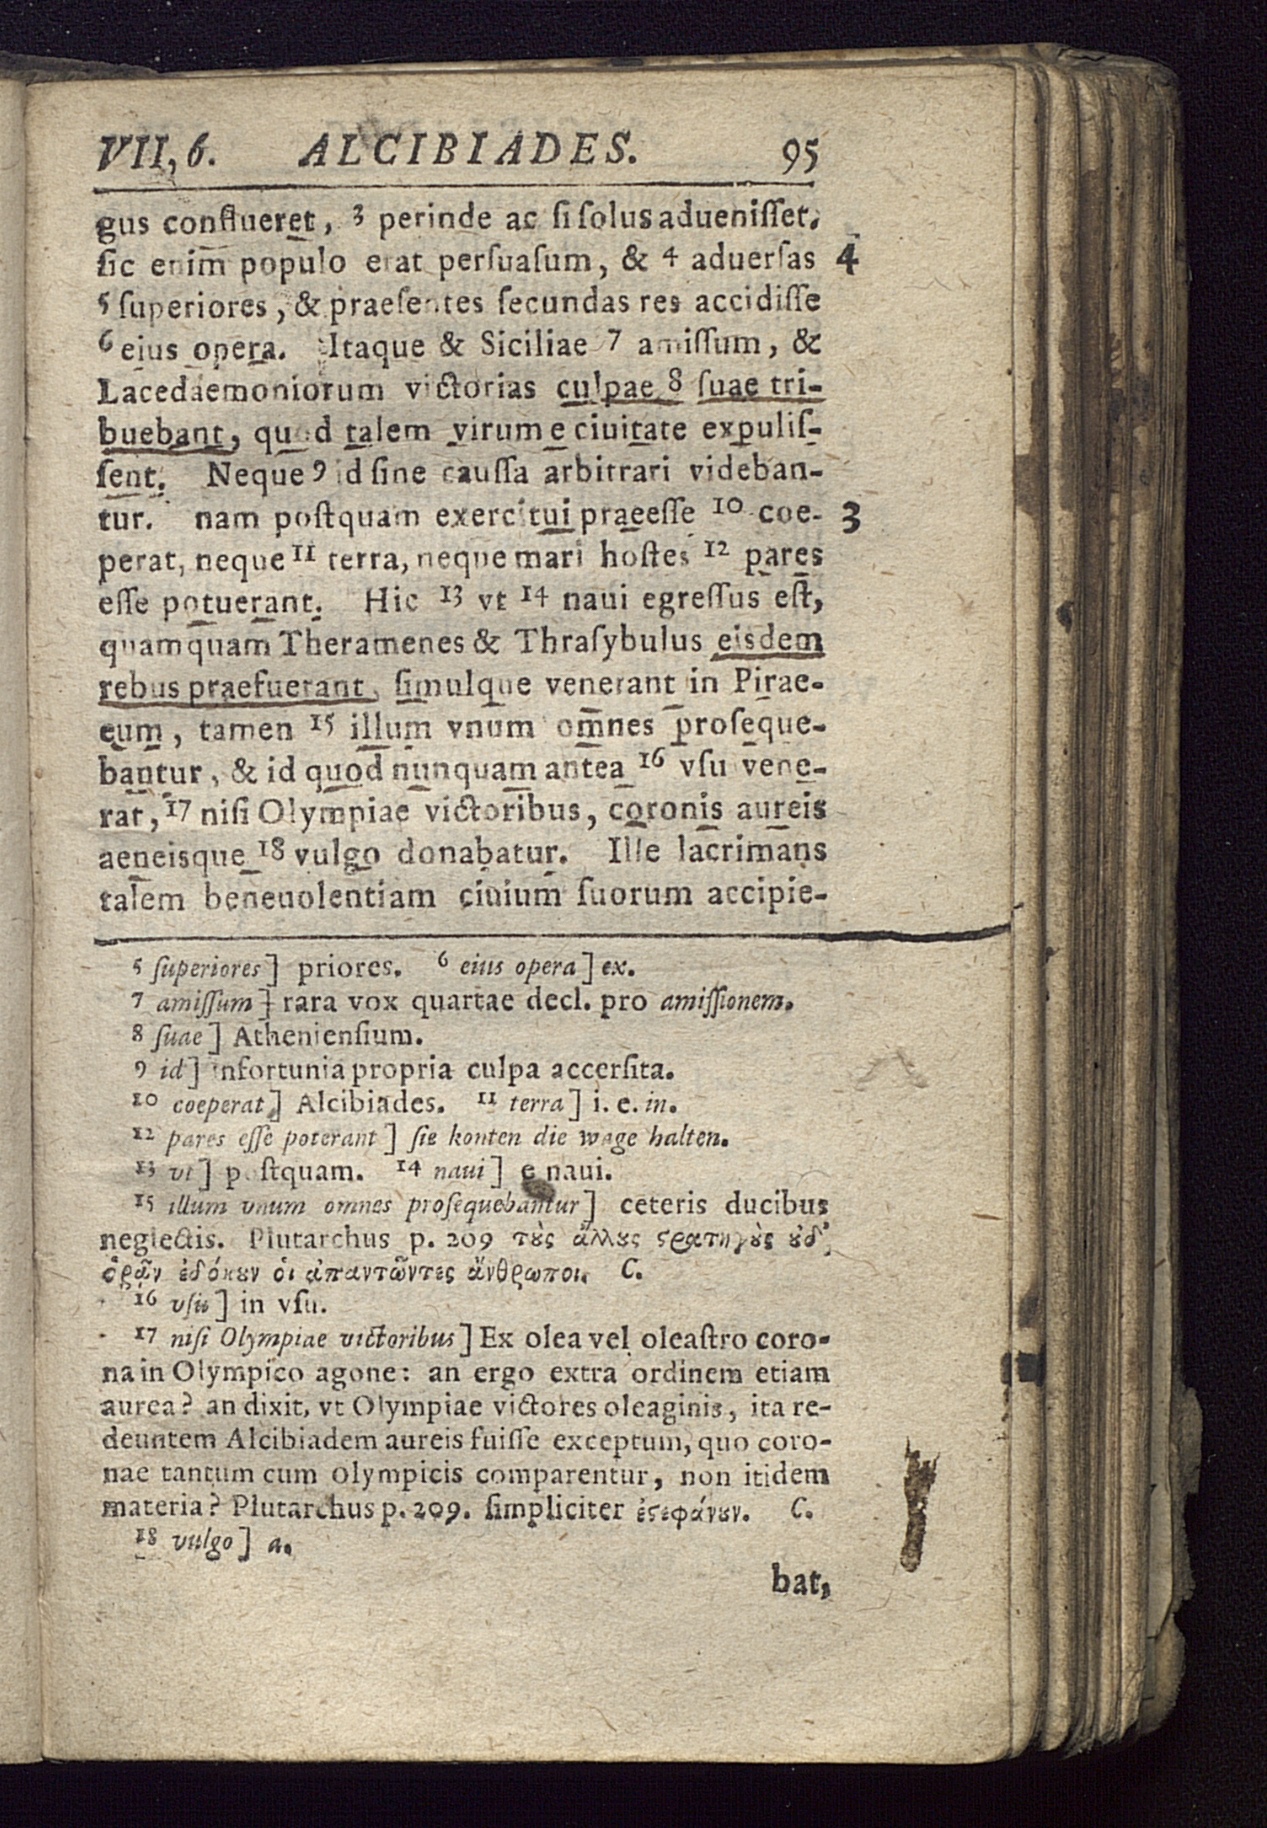 VII, 6. ALCIBIADES. 95
gus conflueret, 3 perinde ac si solus aduenisset.
sic enim populo erat persuasum, & 4 aduersas 4
5 superiores, & praesentes secundas res accidisse
6 eius opera. Itaque & Siciliae 7 amissum, &
Lacedaemoniorum victorias culpae 8 suae tri-
buebant, quod talem virum e ciuitate expulis-
sent. Neque 9 id sine caussa arbitrari videban-
tur. nam postquam exercitui praeesse 10 coe- 3
perat, neque 11 terra, neque mari hostes 12 pares
esse potuerant. Hic 13 vt 14 naui egressus est,
quamquam Theramenes & Thrasybulus eisdem
rebus praefuerant, simulque venerant in Pirae-
eum, tamen 15 illum vnum omnes proseque-
bantur, & id quod nunquam antea 16 vsu vene-
rat, 17 nisi Olympiae victoribus, coronis aureis
aeneisque 18 vulgo donabatur. Ille lacrimans
talem beneuolentiam ciuium suorum accipie-
5 superiores] priores. 6 eius opera] ex.
7 amissum] rara vox quartae decl. pro amissionem.
8 suae] Atheniensium.
9 id] infortunia propria culpa accersita.
10 coeperat] Alcibiades. 11 terra] i. e. in.
12 pares esse poterant] sie konten die wage halten.
13 vt] postquam. 14 naui] e naui.
15 illum vnum omnes prosequebantur] ceteris ducibus
neglectis. Plutarchus p. 209 τὺς ἄλλυς ϛρατηγὺς ȣδ'
ὁρᾷν ἐδόκȣν ὁι ἀπαντῶντες ἄνθρωποι. C.
16 vsu] in vsu.
17 nisi Olympiae victoribus] Ex olea vel oleastro coro-
na in Olympico agone: an ergo extra ordinem etiam
aurea? an dixit, vt Olympiae victores oleaginis, ita re-
deuntem Alcibiadem aureis fuisse exceptum, quo coro-
nae tantum cum Olympicis comparentur, non itidem
materia? Plutarchus p. 209. simpliciter ἐϛεφάνȣν. C.
18 vulgo] a.
bat,